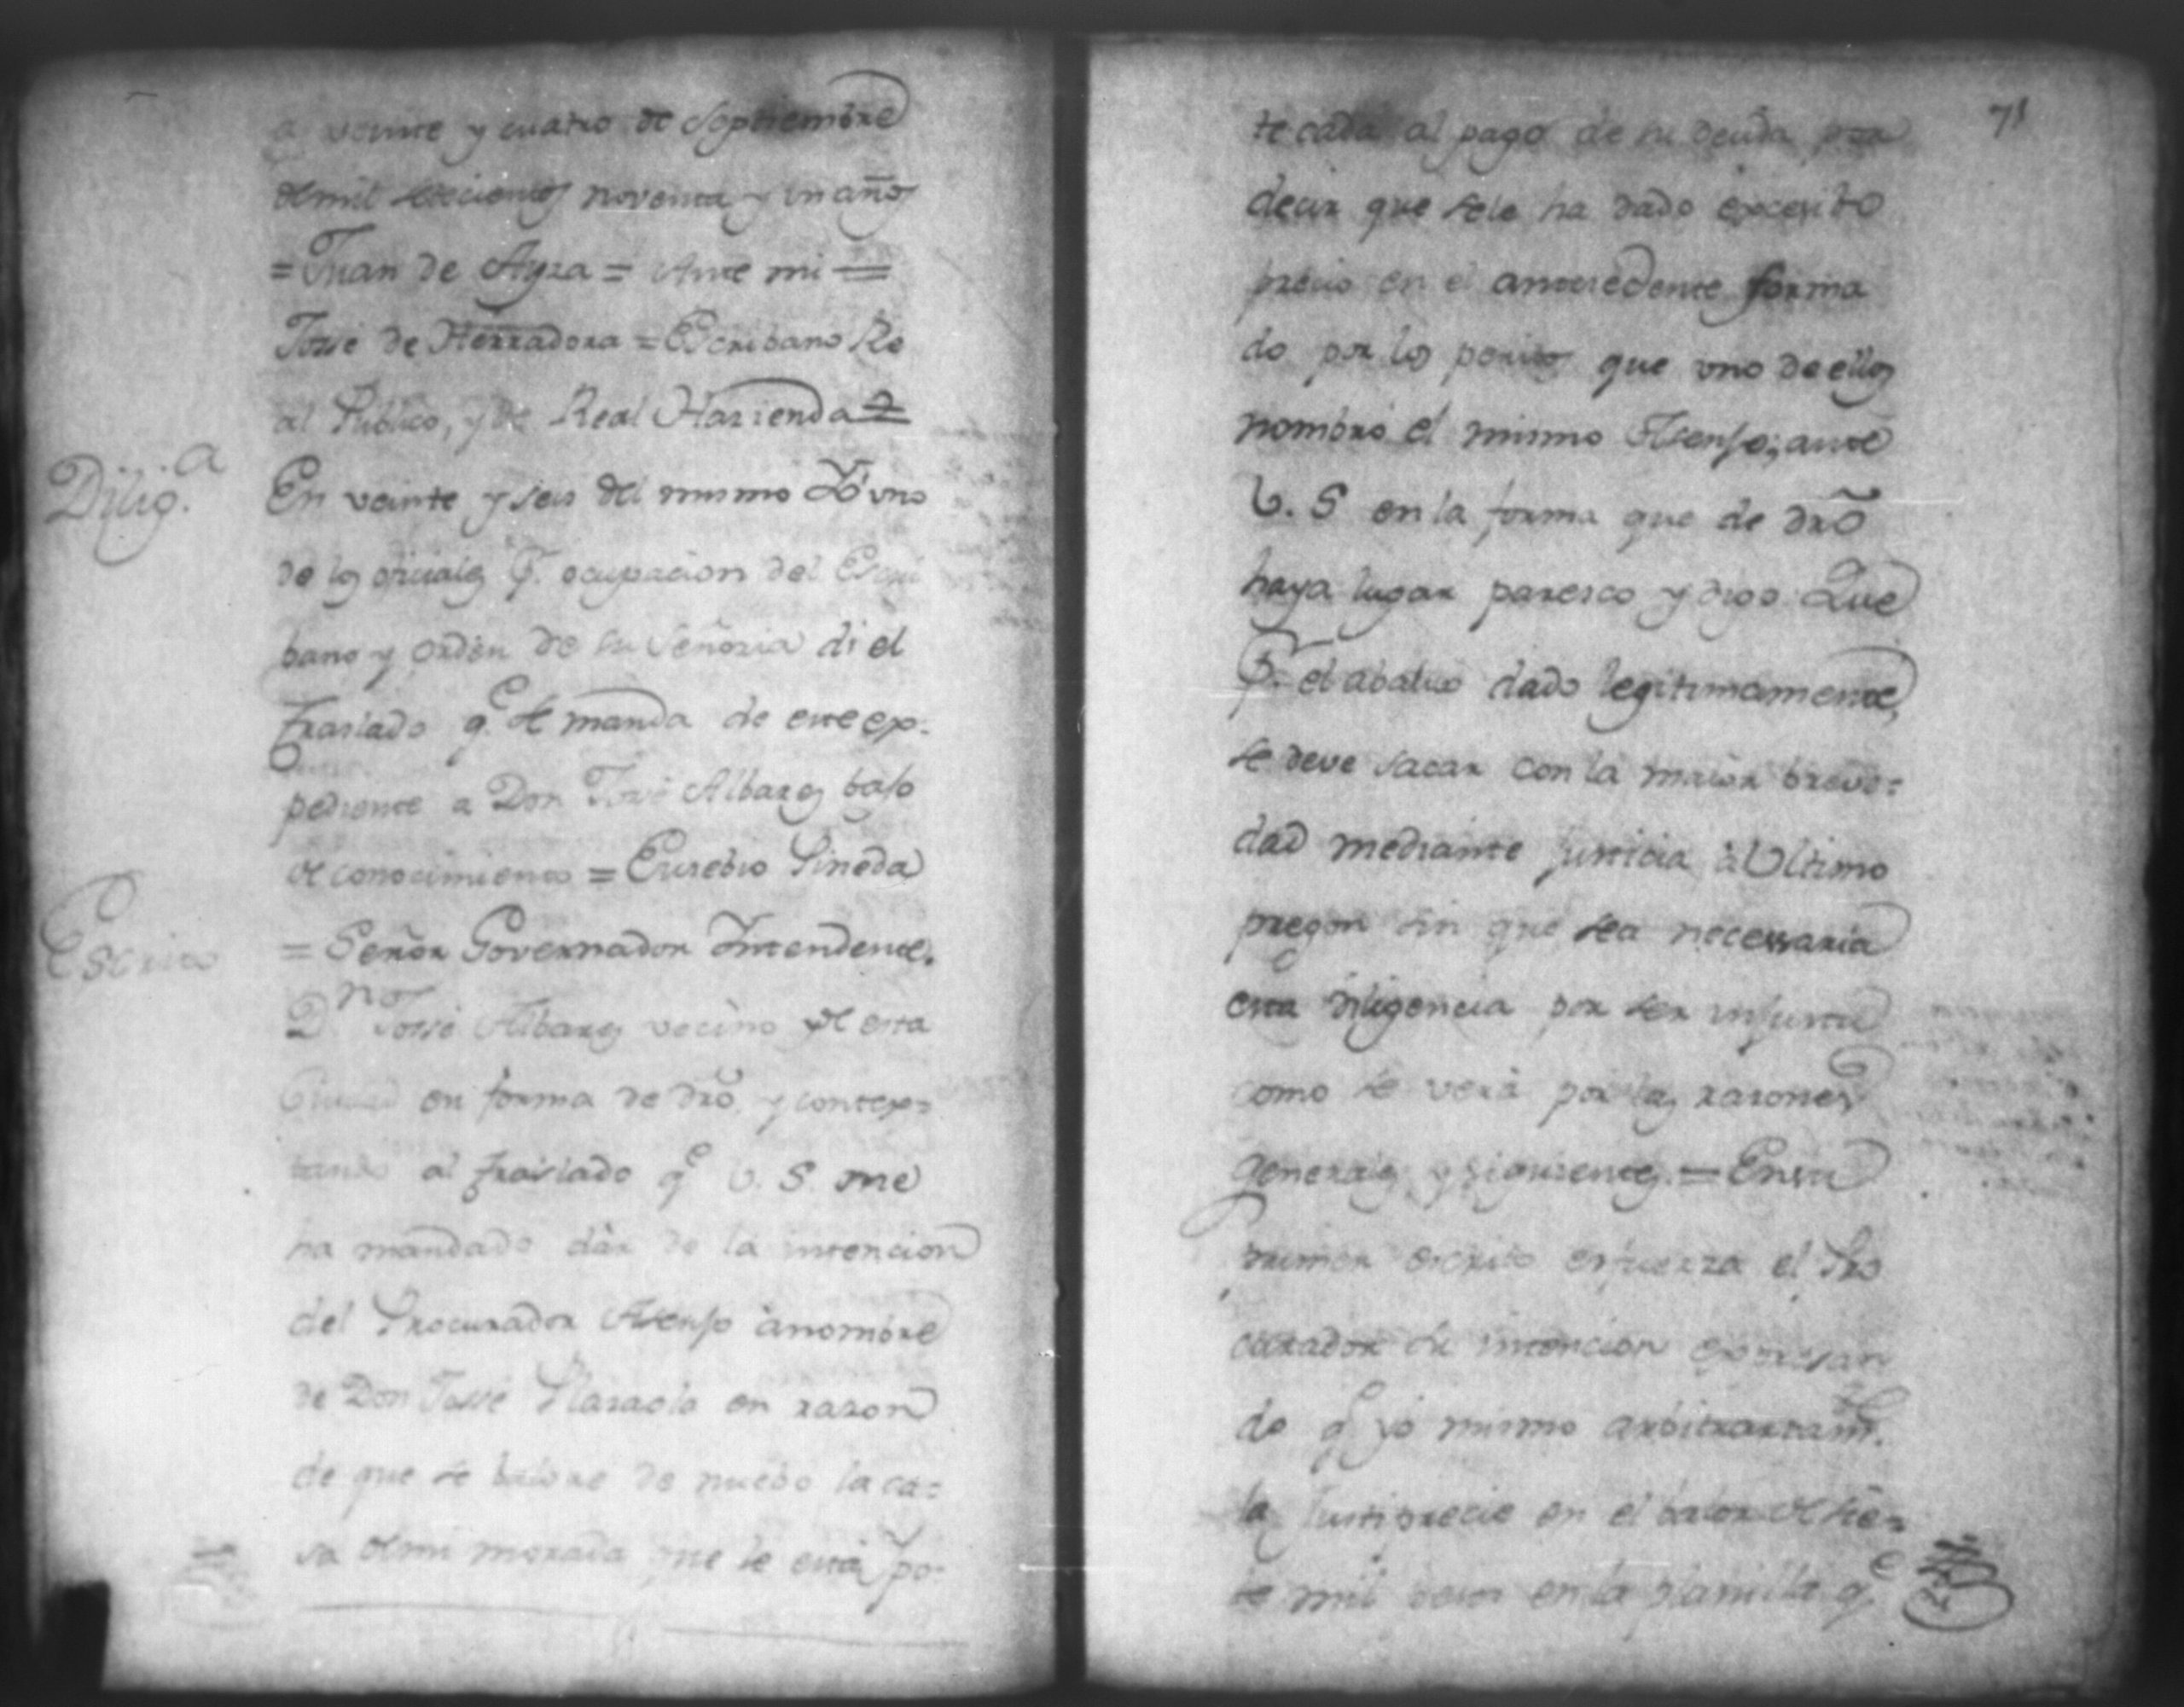 a veinte y cuatro de Septiembre
de mil setecientos noventa y un años
= Juan de Ayza = Ante mi =
Josse de Herradora = Escribano Re
al Publico, y de Real Hazienda =
Dilig.a
En veinte y seis del mismo Yo uno
de los oficiales p.r ocupacion del Escri
bano y orden de su Señoria di el
traslado q.e se manda de este ex-
pediente a Don José Albarez bajo
de conocimiento = Eusebio Pineda
Escrito
= Señor Governador Intendente.
D.n Josse Albarez vecino de esta
Ciudad en forma de dro. y contex=
tando al traslado q.e V. S. me
ha mandado dàr de la intencion
del Procurador Asenjo à nombre
de Don Josse en razon
de que se de nuebo la ca=
sa de mi morada que le està ÿpo-
71
tecada al pago de su deuda para
decir que sele ha dado excesibo
precio en el antecedente forma
do por los peritos que uno de ellos
nombró el mismo Asenjo; ante
V. S en la forma que de dro
haya lugar paresco y digo: Que
p.r el abaluo dado legitimamente,
se deve sacar con la maior breve=
dad mediante justicia à Ultimo
pregon sin que sea necessaria
esta diligencia por ser injusta
como se verà por las razones
generales y siguientes. = En su
primer escrito esfuerza el Pro
curador su intencion expresan
do q.e yo mismo arbitrariam.te
la justiprecie en el balor de sie=
te mil pesos en la planilla q.e